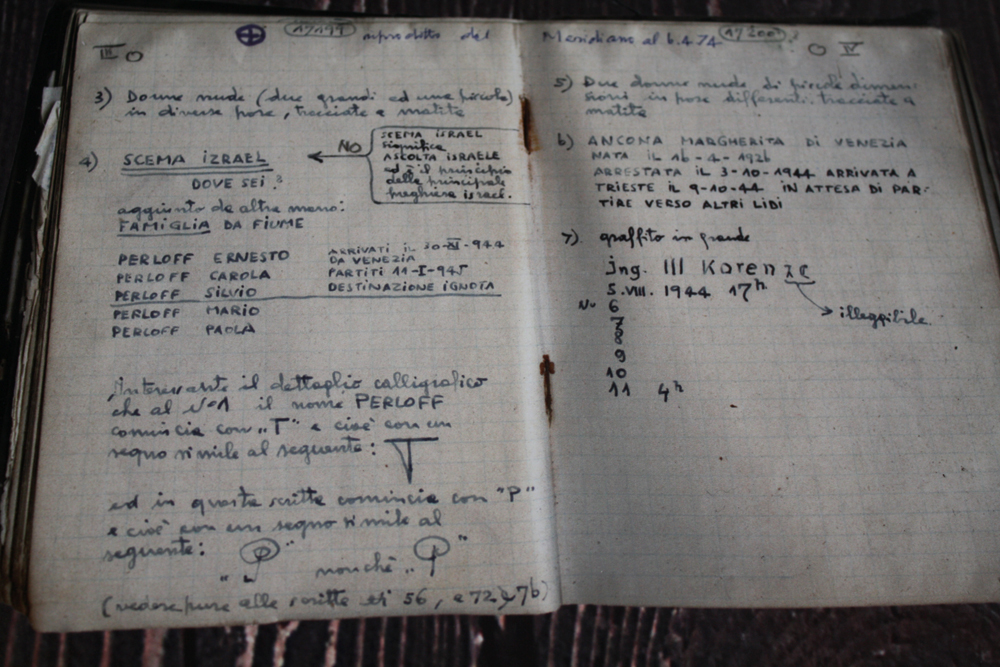 III O
17199 riprodotto del
3) Donne nude (due grandi ed una piccola)
in diverse pose, tracciate a matita
4) SCEMA IZRAEL
DOVE SEI?
NO
SCEMA ISRAEL
significa
ASCOLTA ISRAELE
ed è il principio
della principale
preghiera israel.
aggiunto da altra mano:
FAMIGLIA DA FIUME
PERLOFF ERNESTO
PERLOFF CAROLA
PERLOFF SILVIO
PERLOFF MARIO
PERLOFF PAOLA
ARRIVATI IL 30-XI-944
DA VENEZIA
PARTITI 11-I-945
DESTINAZIONE IGNOTA
Interessante il dettaglio calligrafico
che al N°1 il nome PERLOFF
comincia con "T" e cioè con un
segno simile al seguente: T
ed in questa scritta comincia con "P"
e cioè con un segno simile al
seguente: "P" nonchè "P"
(vedere pure alle scritte n' 56, e 72 e 76)
Meridiano al 6.4.74 17200
O IV
5) Due donne nude di piccole dimen-
sioni in pose differenti: tracciate a
matita
6) ANCONA MARGHERITA DI VENEZIA
NATA IL 16-4-1926
ARRESTATA IL 3-10-1944 ARRIVATA A
TRIESTE IL 9-10-44 IN ATTESA DI PAR-
TIRE VERSO ALTRI LIDI
7). graffito in grande
ing. III Korenze
5. VIII. 1944 17h
illeggibile.
N° 6
7
8
9
10
11 4h